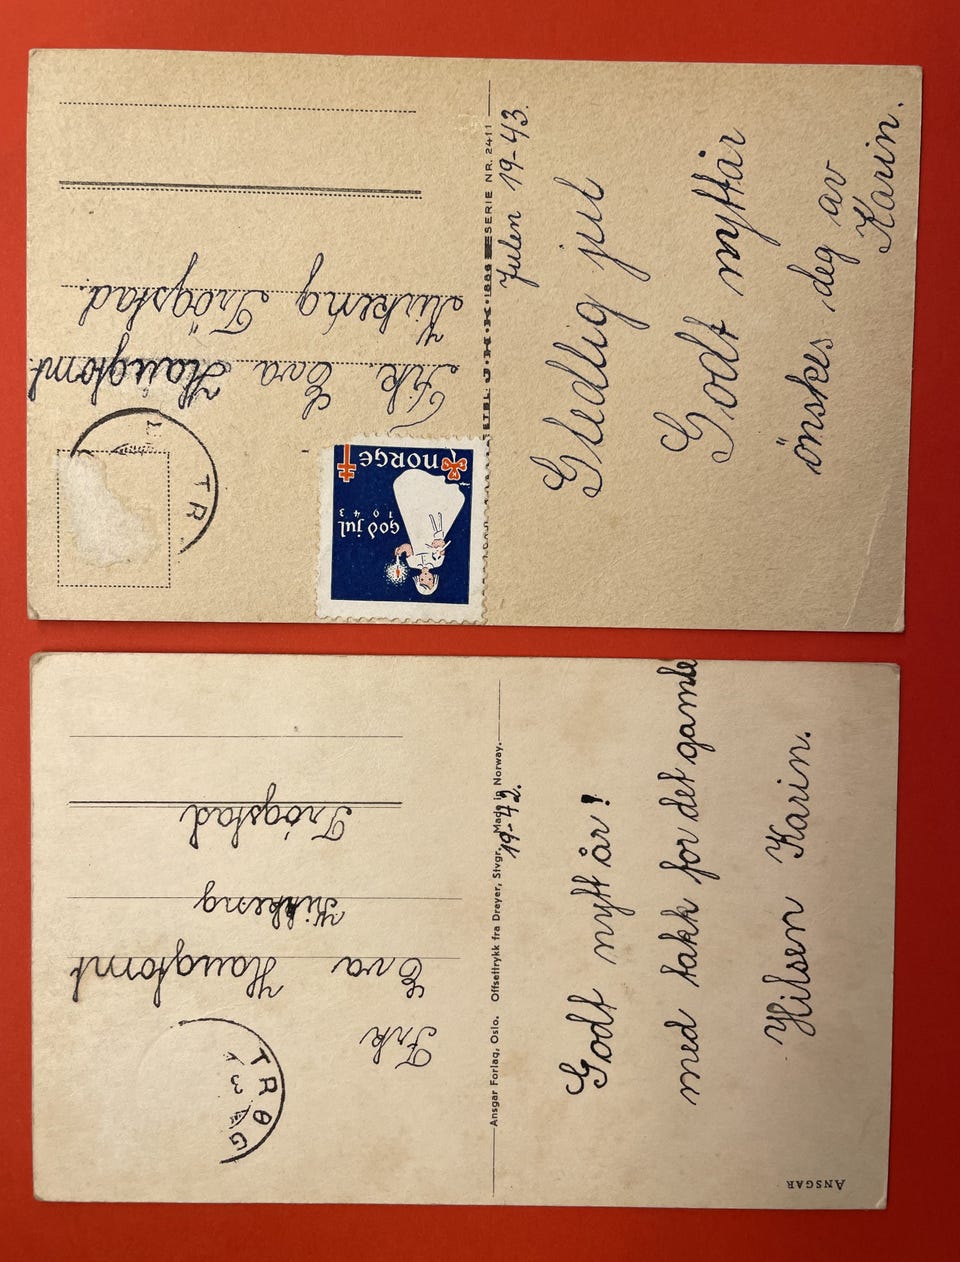 Julen 19-43.
Gledlig jul
Godt nyttår
önskes deg av
Karin.
SERIE NR. 2411
J.H.K. 1886
Frk. Eva Haugtomt.
Kirkeng Trögstad.
god jul
1943
NORGE
TR
19-42.
Godt nytt år!
med takk for det gamle
Hilsen Karin.
Ansgar Forlag, Oslo. Offsettrykk fra Dreyer, Stvgr. Made in Norway.
Frk
Eva Haugtomt
Kirkeng
Trögstad
TRØG
3
ANSGAR